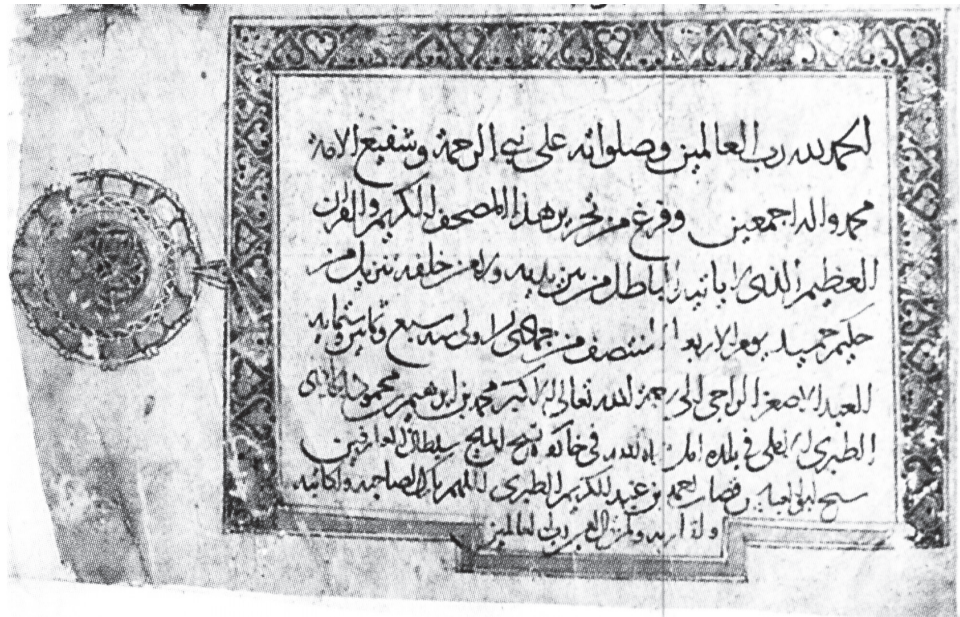 الحمد لله رب العالمين وصلواته على نبي الرحمة وشفيع الامة
محمد واله اجمعين وفرغ من تحرير هذا المصحف الكريم والقران
العظيم الذى لا ياتيه الباطل من بين يديه ولا من خلفه تنزيل من
حكيم حميد يوم الاربعا المنتصف من جمادى الاولى سنه سبع وثمانين وستمايه
العبد الاصغر الراجى الى رحمة الله تعالى محمد بن ابرهيم بن محمود
الطبرى فى بلده الله فى خانكاه الشيخ سلطان العارفين
شيخ ابى العباس قصاب احمد بن عبد الكريم الطبرى اللهم بارك لصاحبه ولكاتبه
ولقاريه رب العالمين